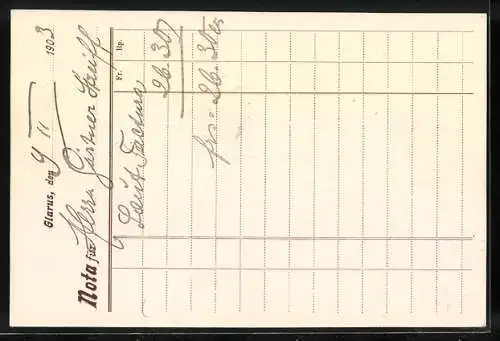 Glarus, den 9/II 1903
Nota für Herrn Gärtner Streiff
Fr. Rp.
Laut Factura 26.30
frs = 26.30